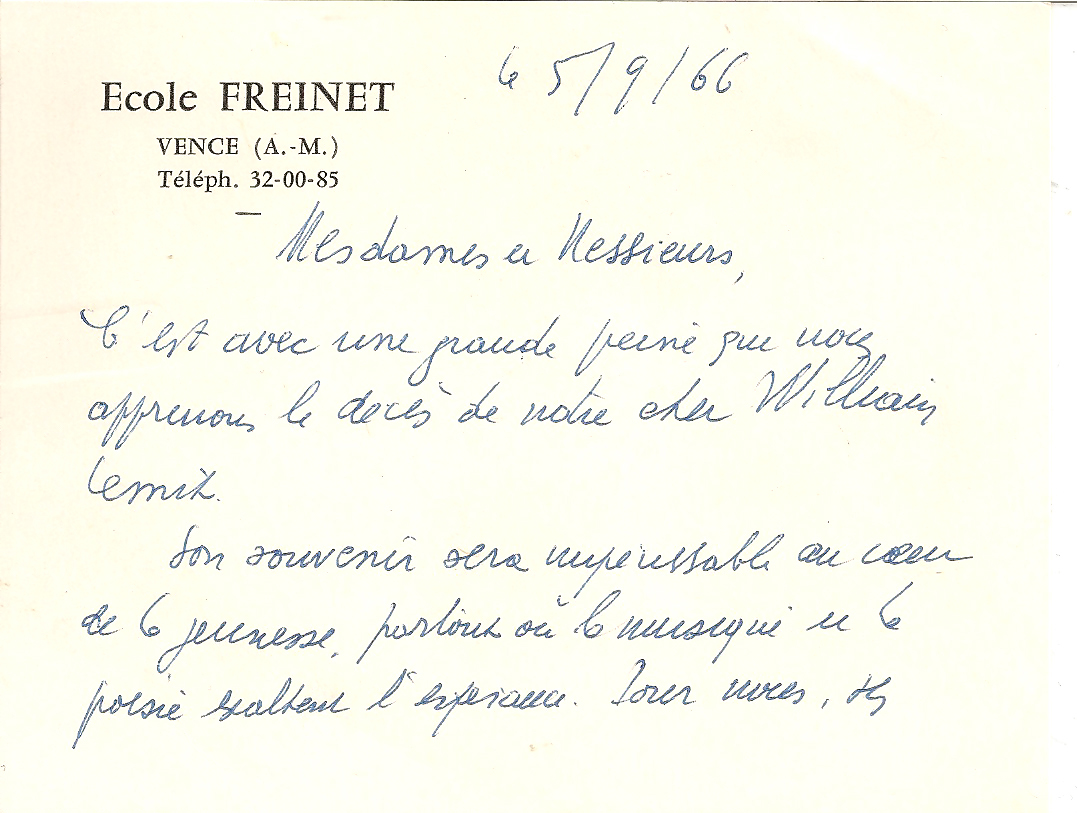 Ecole FREINET
VENCE (A.-M.)
Téléph. 32-00-85
le 5/9/66
Mesdames et Messieurs,
C'est avec une grande peine que nous
apprenons le décès de notre cher William
Lemit.
Son souvenir sera impérissable au cœur
de la jeunesse, partout où la musique et la
poésie exaltent l'espérance. Pour nous,